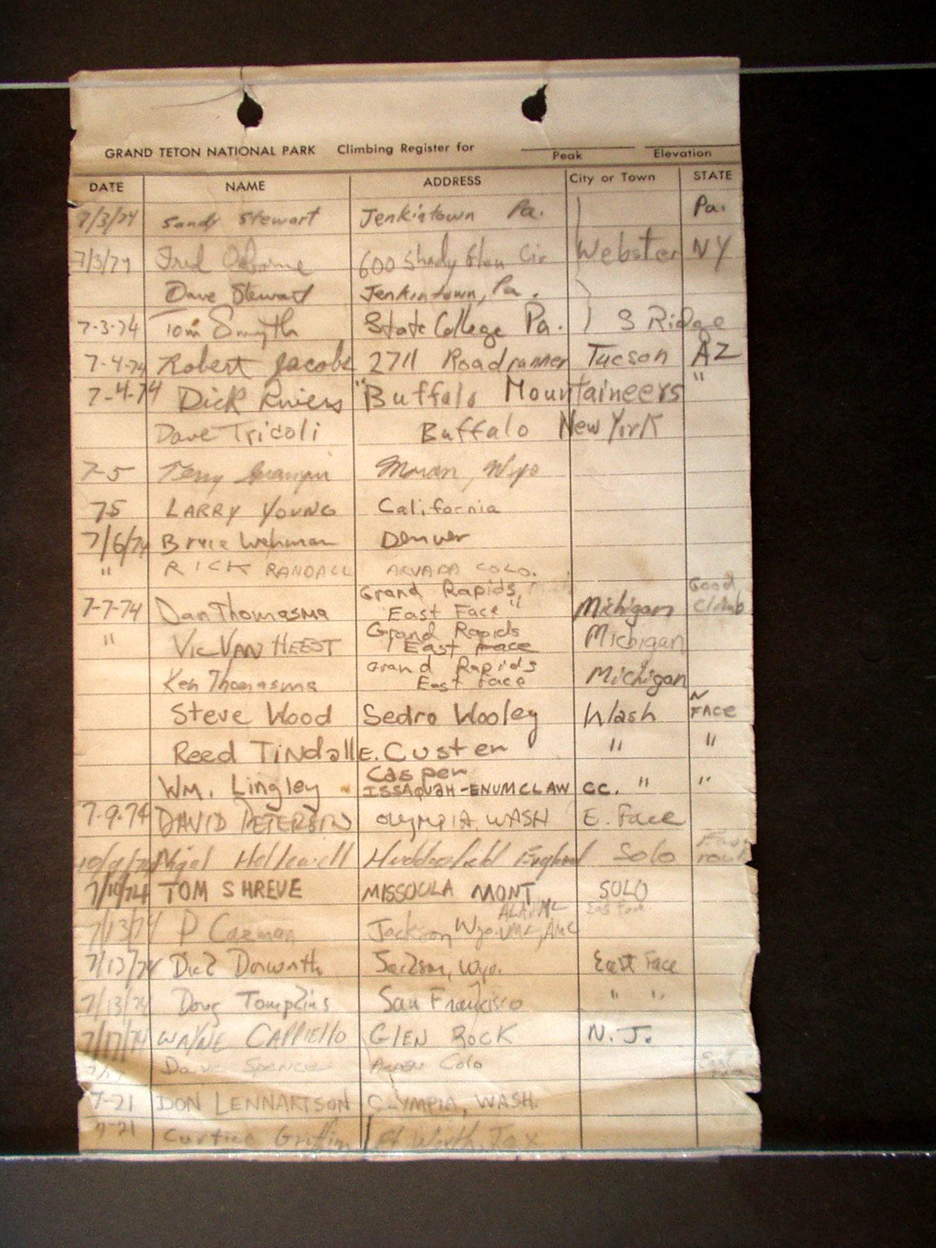 GRAND TETON NATIONAL PARK Climbing Register for
Peak Elevation
DATE NAME ADDRESS City or Town STATE
7/3/74 Sandy Stewart Jenkintown Pa. Pa.
7/3/74 Fred Osborne 600 Shady Glen Cir Webster NY
Dave Stewart Jenkintown, Pa.
7-3-74 Tom Smyth State College Pa. S Ridge
7-4-74 Robert Jacobs 2711 Roadrunner Tucson AZ
7-4-74 Dick Rivers "Buffalo Mountaineers"
Dave Tricoli Buffalo New York
7-5 Terry Moran, Wyo
7 5 LARRY YOUNG California
7/6/74 Bruce Wehman Denver
" RICK RANDALL ARVADA COLO.
7-7-74 Dan Thomasma Grand Rapids "East Face" Michigan Good Climb
" Vic VAN HEEST Grand Rapids East Face Michigan
Ken Thomasma Grand Rapids East Face Michigan
Steve Wood Sedro Wooley Wash N FACE
Reed Tindall E. Custer " "
Wm. Lingley Casper ISSAQUAH-ENUMCLAW CC. " "
7-9-74 DAVID PETERSEN OLYMPIA, WASH E. Face
10/9/74 Nigel Hellewell Huddersfield England Solo East rout
7/10/74 TOM SHREVE MISSOULA MONT SOLO
East Face
7/13/74 P Carman Jackson Wyo
7/12/74 Dick Dorworth Jackson, Wyo. East Face
7/13/74 Doug Tompkins San Francisco " "
7/17/74 WAYNE CAPPIELLO GLEN ROCK N.J.
Dave Spencer Aspen Colo East
7-21 DON LENNARTSON OLYMPIA, WASH.
7-21 Curtice Griffin Ft Worth, Tex